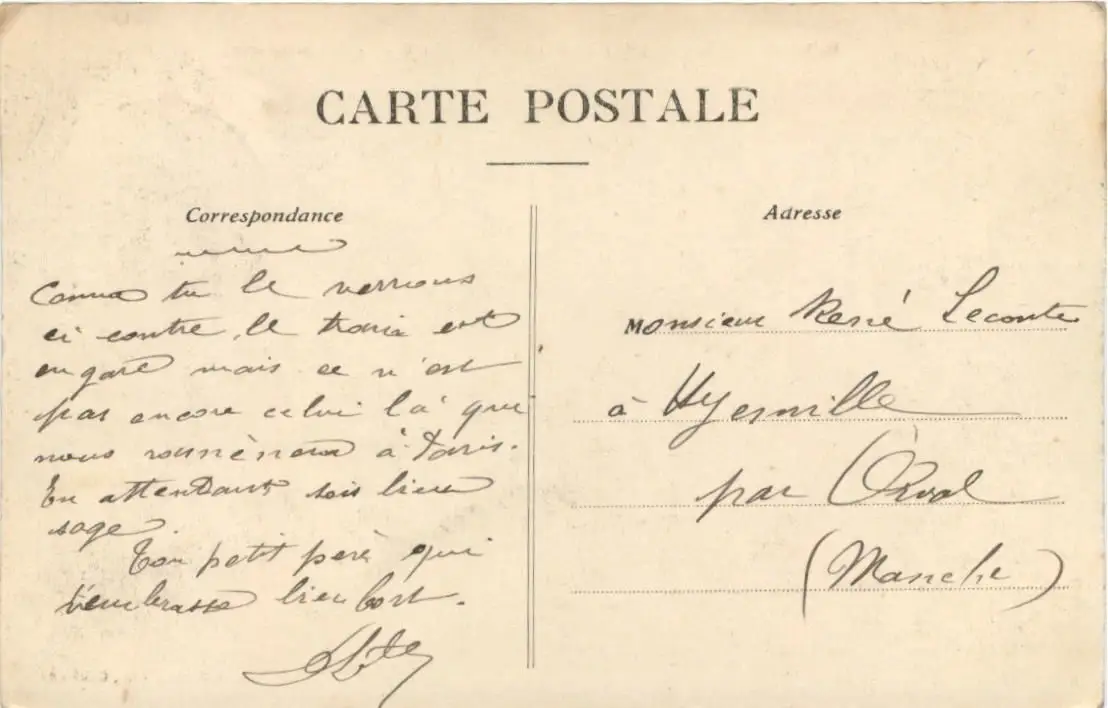 CARTE POSTALE
Correspondance
Comme tu le verrous
ci contre, le train est
en gare mais ce n'est
pas encore celui là que
nous ramènera à Paris.
En attendant sois bien
sage.
Ton petit père qui
t'embrasse bien fort.
Adresse
Monsieur René Leconte
à Hyenville
par Orval
(Manche)